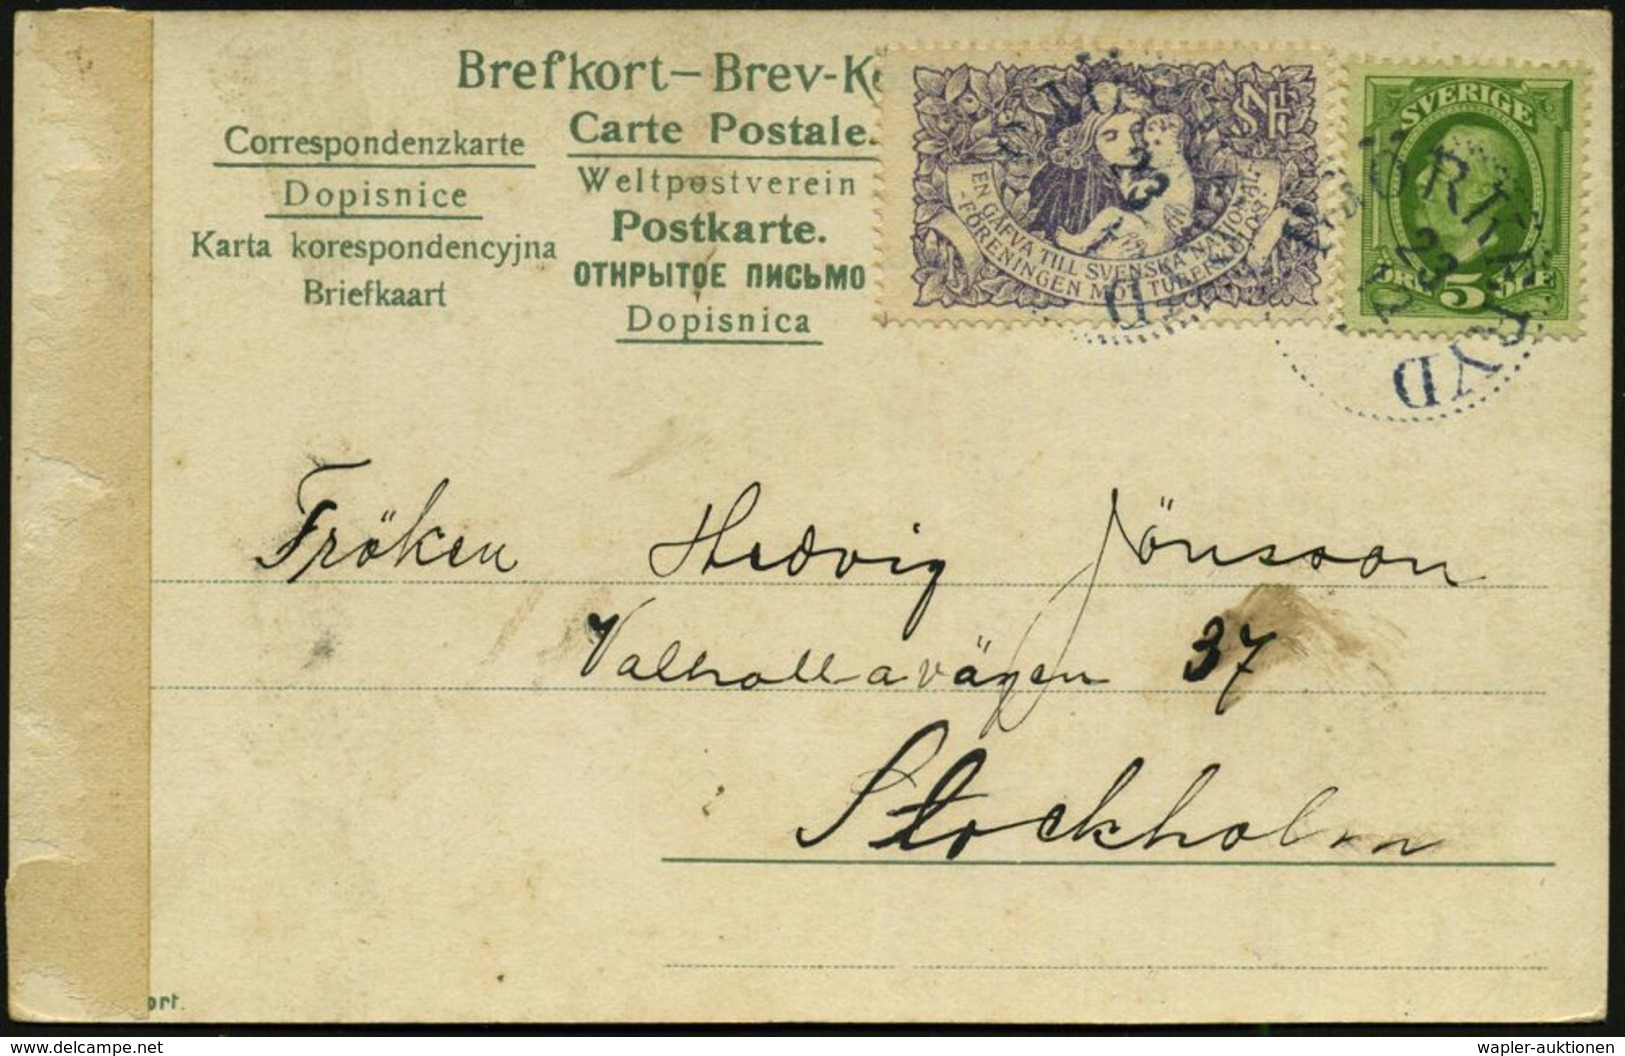 Brefkort – Brev-K
Correspondenzkarte
Dopisnice
Karta korespondencyjna
Briefkaart
Carte Postale.
Weltpostverein
Postkarte.
ОТКРЫТОЕ ПИСЬМО
Dopisnica
EN GÅFVA TILL SVENSKA NATIONAL-
FÖRENINGEN MOT TUBERKULOS
SVERIGE
5
23
23
YD
Fröken Hedvig Jönsson
Valhallavägen 37
Stockholm
ort.
www.delcampe.net
wapler-auktionen